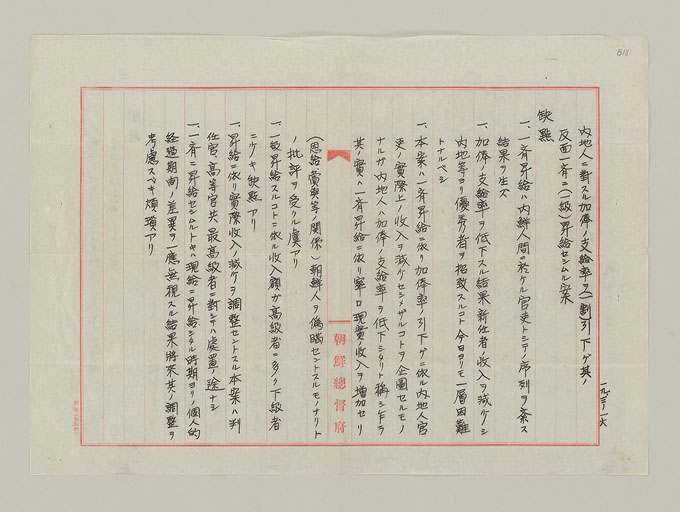 一九、三、一六
内地人ニ對スル加俸ノ支給率ヲ(一割)引下ゲ其ノ
反面一齊ニ(一級)昇給セシムル案
缺點
一、一齊昇給ハ内鮮人間ニ於ケル官吏トシテノ序列ヲ紊ス
結果ヲ生ズ
一、加俸ノ支給率ヲ低下スル結果新任者ノ收入ヲ減ゲシ
内地等ヨリ優秀者ヲ招致スルコト今日ヨリモ一層困難
トナルベシ
一、本案ハ一齊昇給ニ依リ加俸率ノ引下ゲニ依ル内地人官
吏ノ實際上ノ收入ヲ減ゲセシメザルコトヲ企圖セルモノ
ナルガ内地人ハ加俸ノ支給率ヲ低下シタリト稱シ乍ラ
其ノ實ハ一齊昇給ニ依リ寧ロ現實ノ收入ヲ増加セリ
(恩給賞與等ノ關係)朝鮮人ヲ偽瞞セントスルモノナリト
ノ批評ヲ受クル虞アリ
一、一級昇給スルコトニ依ル收入額ガ高級者ニ多ク下級者
ニ少キ缺點アリ
一、昇給ニ依リ實際收入ノ減ゲヲ調整セントスル本案ハ判
任官、高等官共最高級者ニ對シテハ處置ノ途ナシ
一、一齊ニ昇給セシムルトキハ現給ニ昇給シタル時期ヨリノ個人的
經過期間ノ差異ヲ一應無視スル結果將來其ノ調整ヲ
考慮スベキ煩瑣アリ
朝鮮總督府